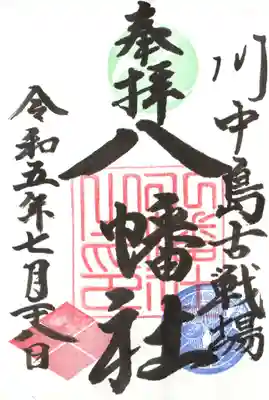 川中島古戦場
奉拝
八幡社
令和五年七月